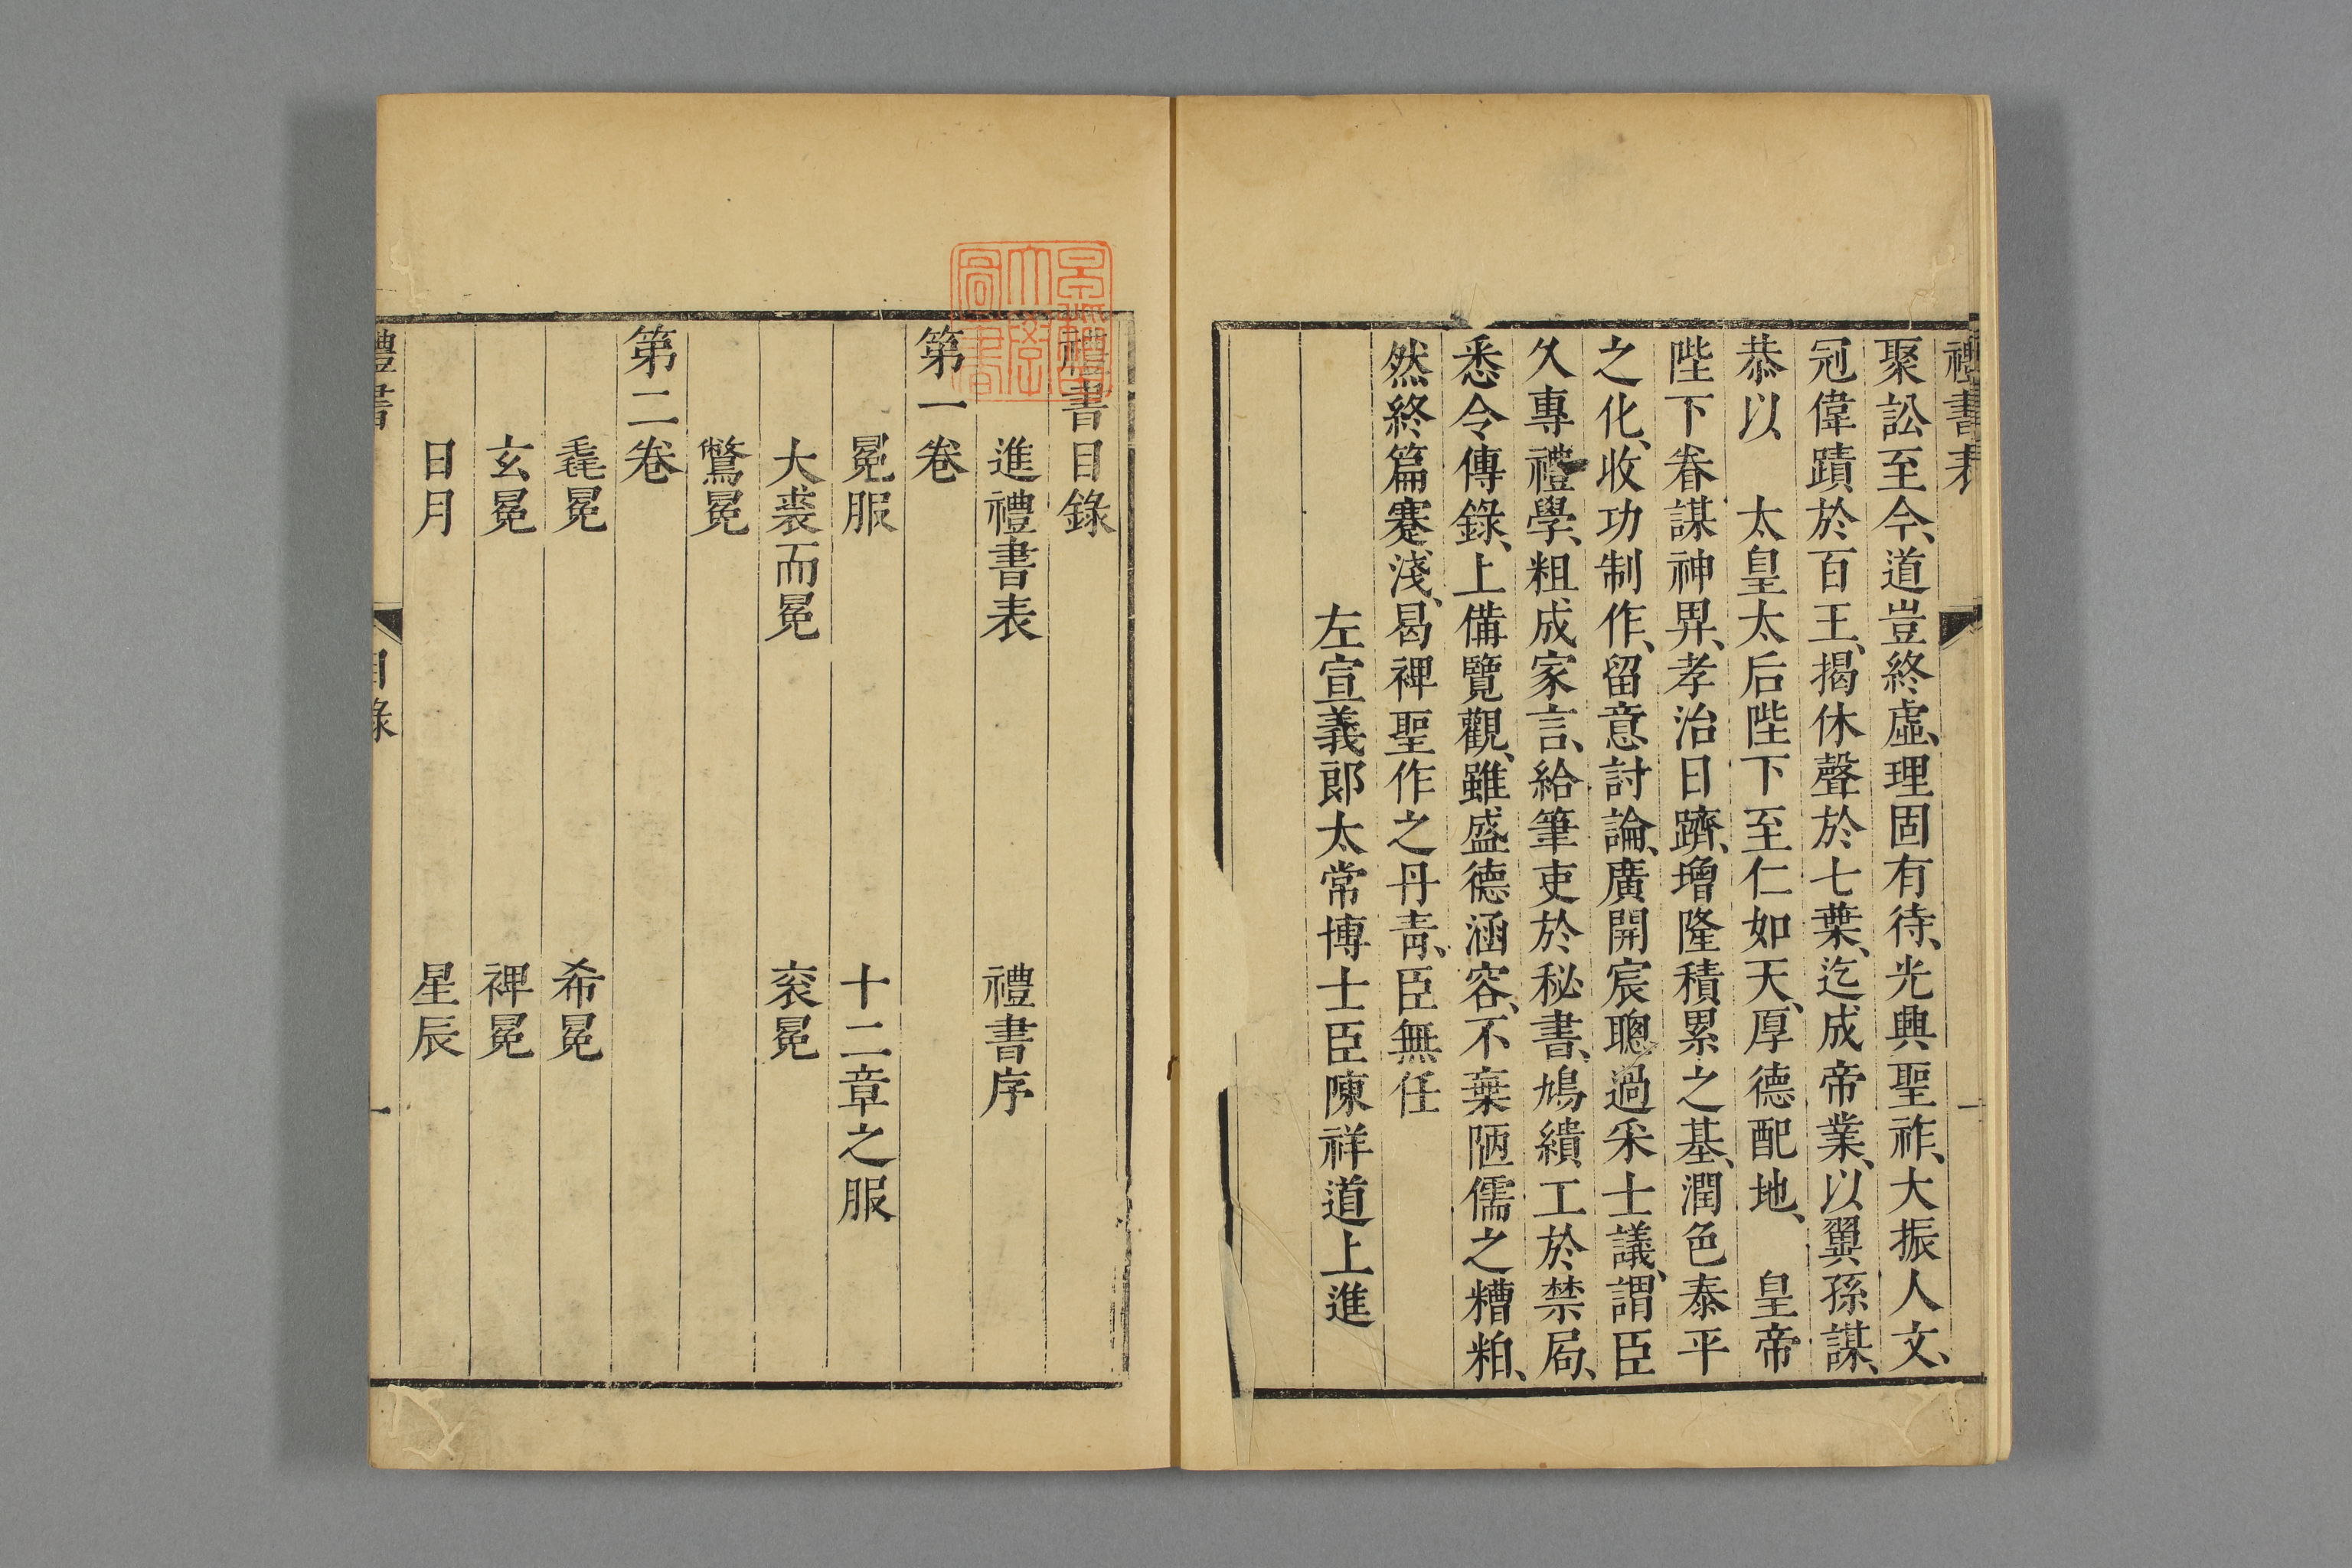 禮書表
聚訟至今、道豈終虛、理固有待、光興聖祚、大振人文、
冠偉蹟於百王、揭休聲於七葉、迄成帝業、以翼孫謀、
恭以 太皇太后陛下至仁如天、厚德配地、 皇帝
陛下眷謀神畀、孝治日躋、增隆積累之基、潤色泰平
之化、收功制作、留意討論、廣開宸聰、過采士議、謂臣
久專禮學、粗成家言、給筆吏於秘書、鳩繢工於禁局、
悉令傳錄、上備覽觀、雖盛德涵容、不棄陋儒之糟粕、
然終篇蹇淺、曷裨聖作之丹青、臣無任
左宣義郎太常博士臣陳祥道上進
一
禮書目錄
進禮書表 禮書序
第一卷
冕服 十二章之服
大裘而冕 衮冕
鷩冕
第二卷
毳冕 希冕
玄冕 裨冕
日月 星辰
禮書 目錄 一